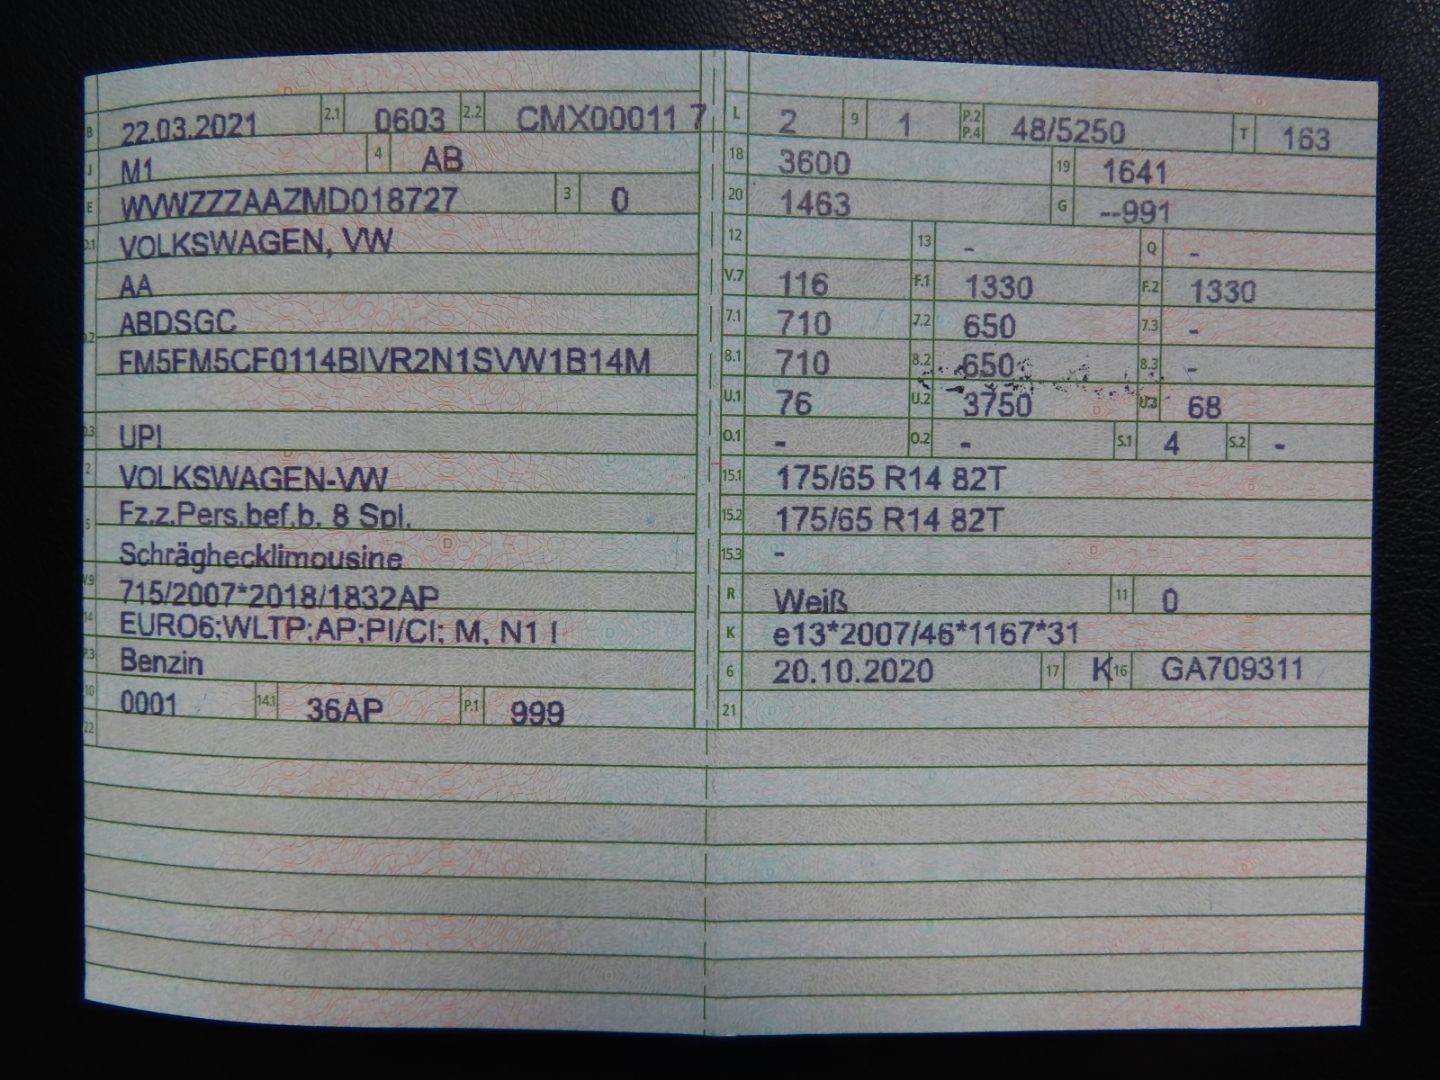 B 22.03.2021 2.1 0603 2.2 CMX00011 7
J M1 4 AB
E WVWZZZAAZMD018727 3 0
D.1 VOLKSWAGEN, VW
AA
D.2 ABDSGC
FM5FM5CF0114BIVR2N1SVW1B14M
D.3 UP!
2 VOLKSWAGEN-VW
5 Fz.z.Pers.bef.b. 8 Spl.
Schräghecklimousine
V.9 715/2007*2018/1832AP
14 EURO6;WLTP;AP;PI/CI; M, N1 I
P.3 Benzin
10 0001 14.1 36AP P.1 999
22
L 2 9 1 P.2 P.4 48/5250 T 163
18 3600 19 1641
20 1463 G --991
12 13 - Q -
V.7 116 F.1 1330 F.2 1330
7.1 710 7.2 650 7.3 -
8.1 710 8.2 650 8.3 -
U.1 76 U.2 3750 U.3 68
O.1 - O.2 - S.1 4 S.2 -
15.1 175/65 R14 82T
15.2 175/65 R14 82T
15.3 -
R Weiß 11 0
K e13*2007/46*1167*31
6 20.10.2020 17 K 16 GA709311
21